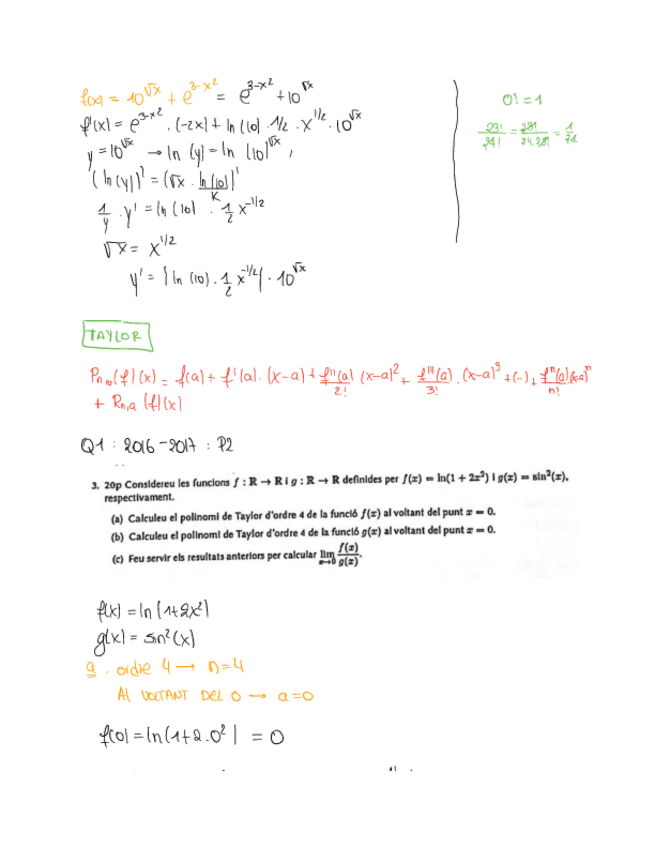 f(x) = 10^√x + e^(3-x²) = e^(3-x²) + 10^√x
f'(x) = e^(3-x²) · (-2x) + ln(10) · 1/2 · x^(1/2) · 10^√x
y = 10^√x → ln(y) = ln(10)^√x
(ln(y))' = (√x · ln(10))'
K
1/y · y' = ln(10) · 1/2 x^(-1/2)
√x = x^(1/2)
y' = (ln(10) · 1/2 x^(-1/2)) · 10^√x
0! = 1
23!/24! = 23!/24·23! = 1/24
TAYLOR
Pn,a(f)(x) = f(a) + f'(a) · (x-a) + f''(a)/2! (x-a)² + f'''(a)/3! · (x-a)³ + (...) + fⁿ(a)/n! (x-a)ⁿ
+ Rn,a(f)(x)
Q1 : 2016-2017 : P2
3. 20p Considereu les funcions f : R → R i g : R → R definides per f(x) = ln(1 + 2x²) i g(x) = sin²(x),
respectivament.
(a) Calculeu el polinomi de Taylor d'ordre 4 de la funció f(x) al voltant del punt x = 0.
(b) Calculeu el polinomi de Taylor d'ordre 4 de la funció g(x) al voltant del punt x = 0.
(c) Feu servir els resultats anteriors per calcular lim x→0 f(x)/g(x).
f(x) = ln(1+2x²)
g(x) = sin²(x)
a. ordre 4 → n=4
Al VOLTANT DEL 0 → a=0
f(0) = ln(1+2·0²) = 0